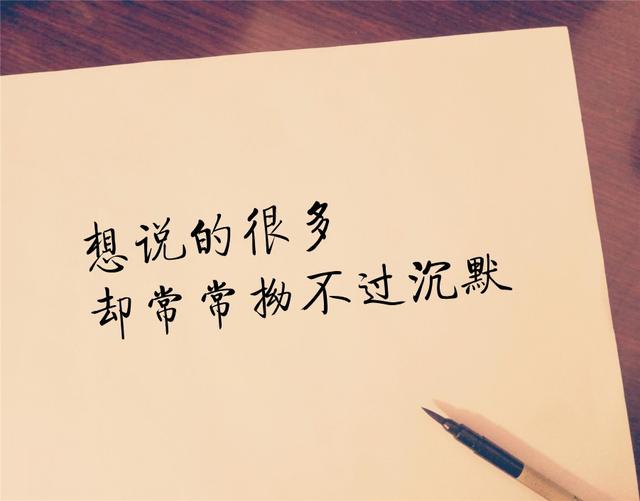 想说的很多
却常常拗不过沉默